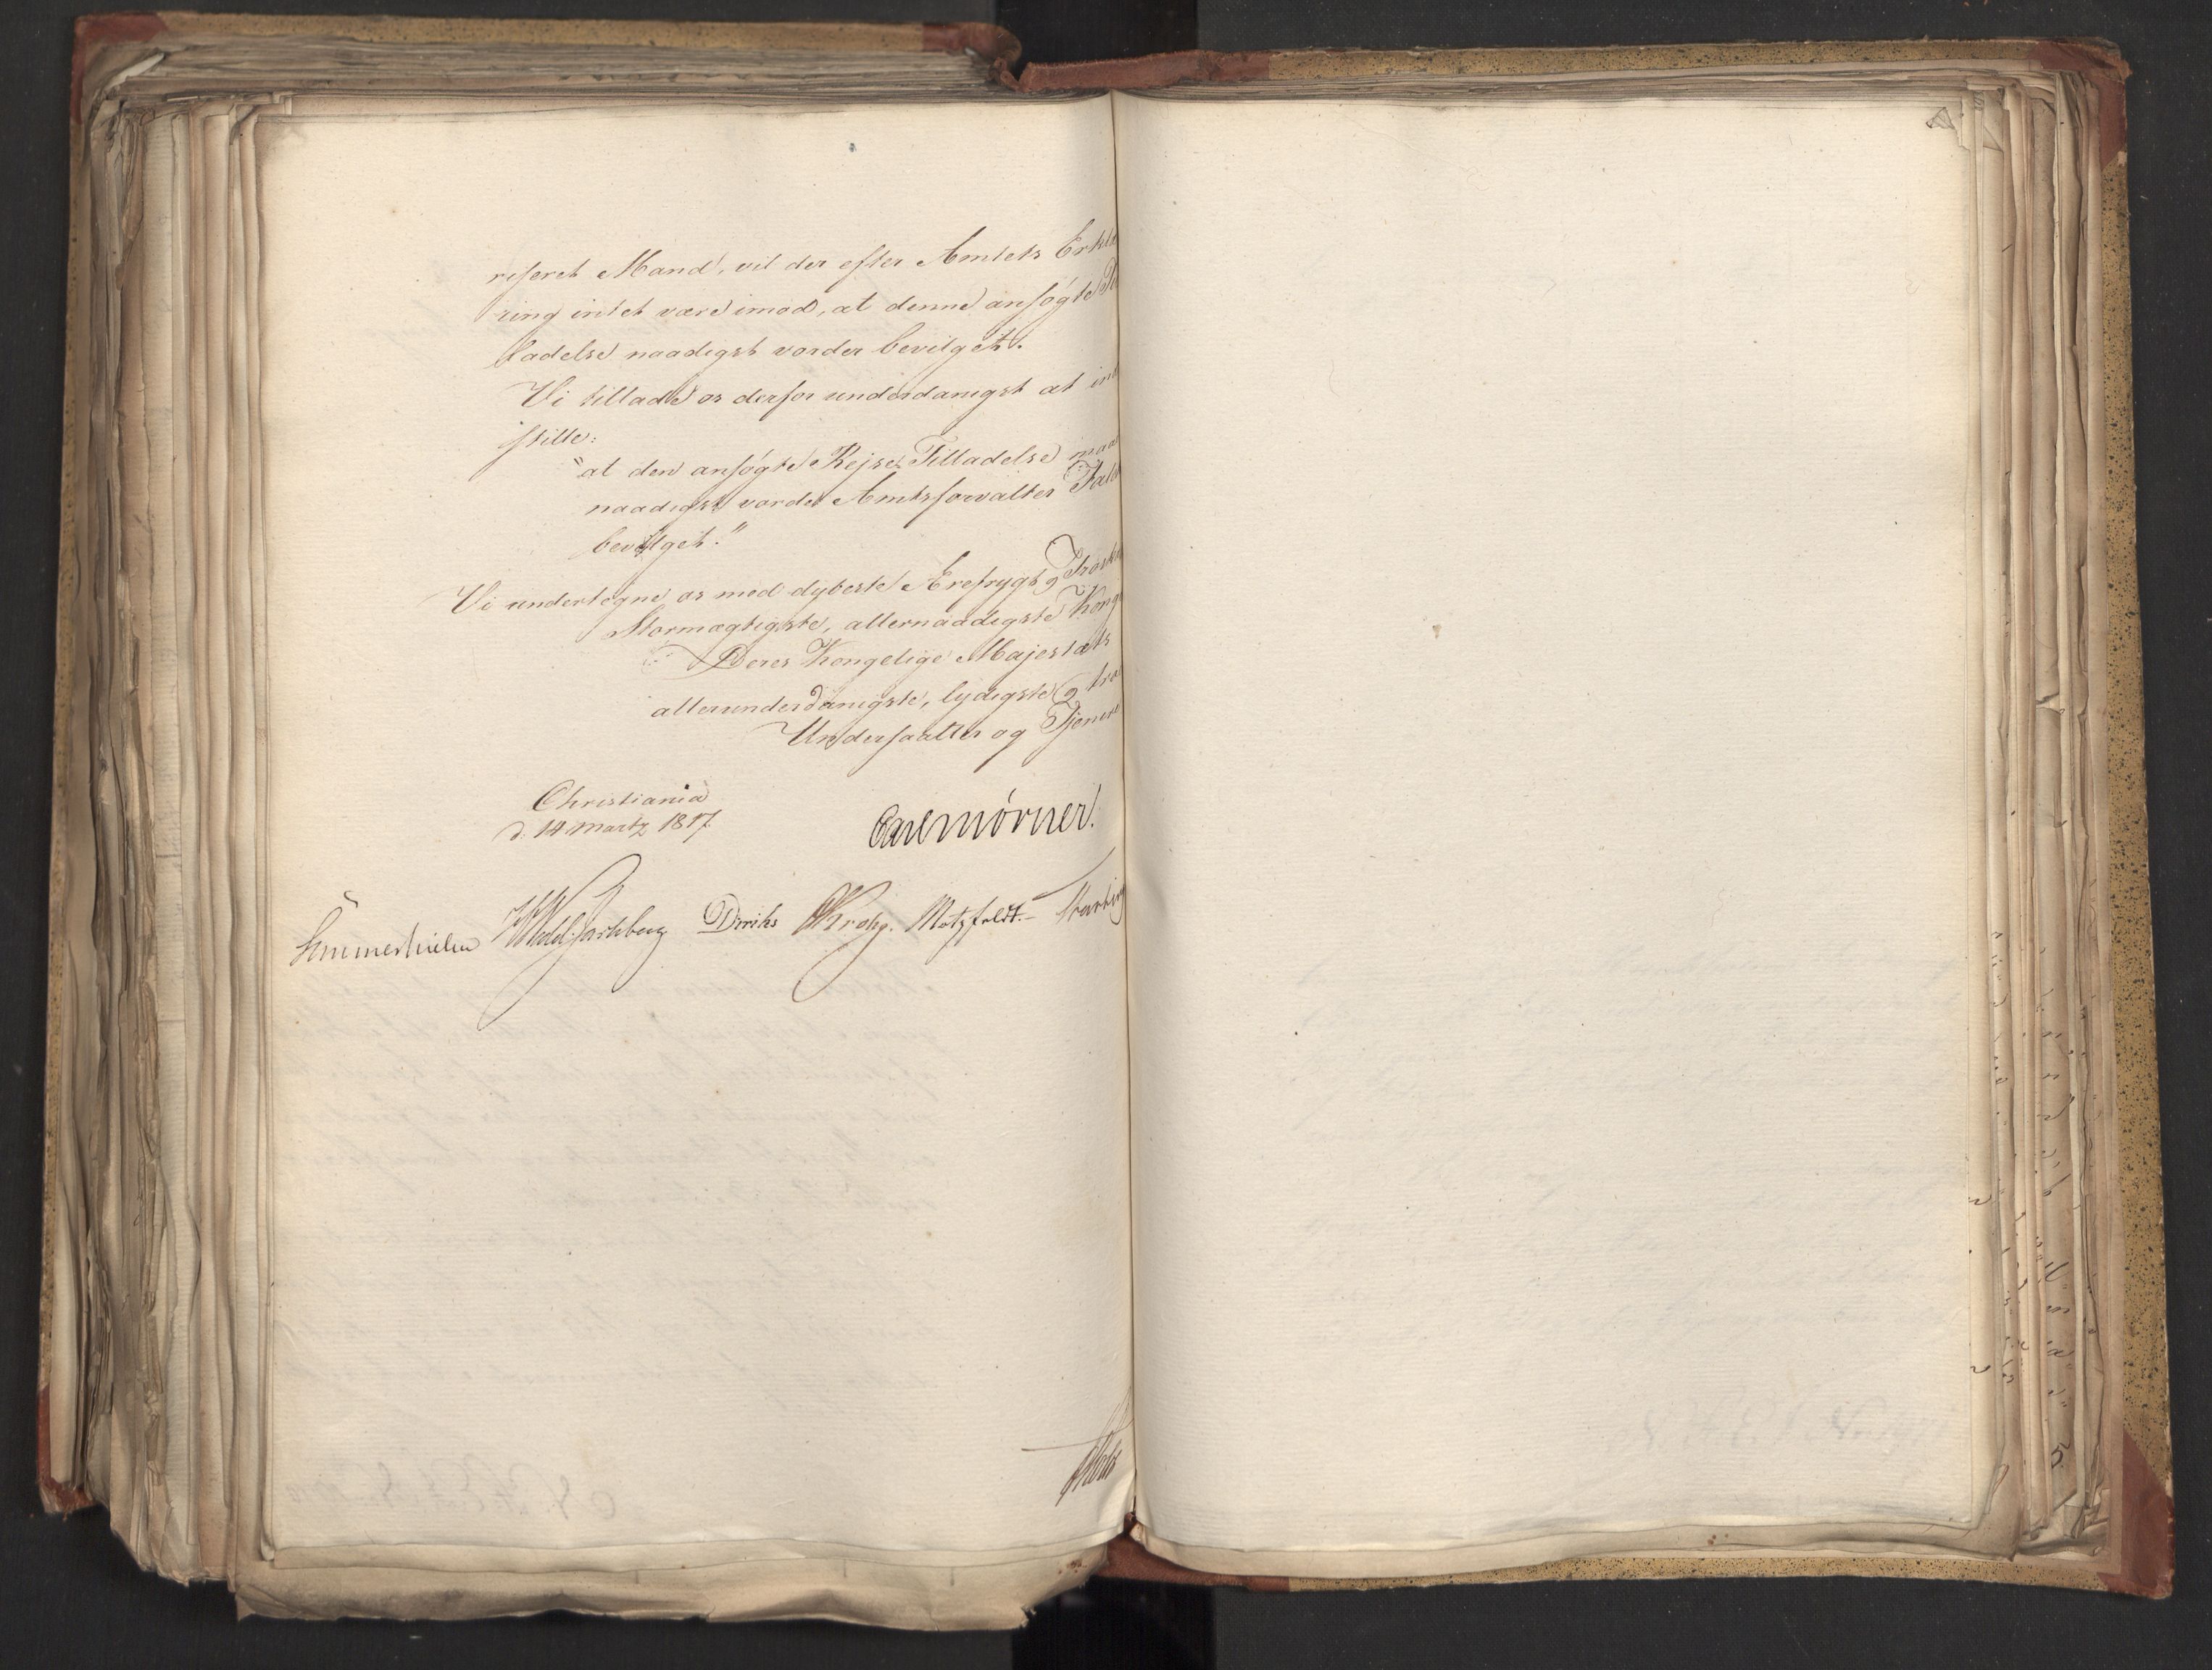 riseret Mand, vil der efter Amtets Erklæ
ring intet være imod, at denne ansøgte
ladelse naadigst vorder bevilget.
Vi tillade os derfor underdanigst at ind
stille:
"at den ansøgte Rejse-Tilladelse maa
naadigst vorde Amtsforvalter
bevilget."
Vi undertegne os med dybeste Ærefrygt og Troska
Stormægtigste, allernaadigste Kong
Deres Kongelige Majestæts
allerunderdanigste, lydigste og tro
Undersaatter og Tjenere
Christiania
d. 14 Martz 1817.
Carl Mörner.
Sommerhielm WedelJarlsberg Diriks Krohg. Motzfeldt.-